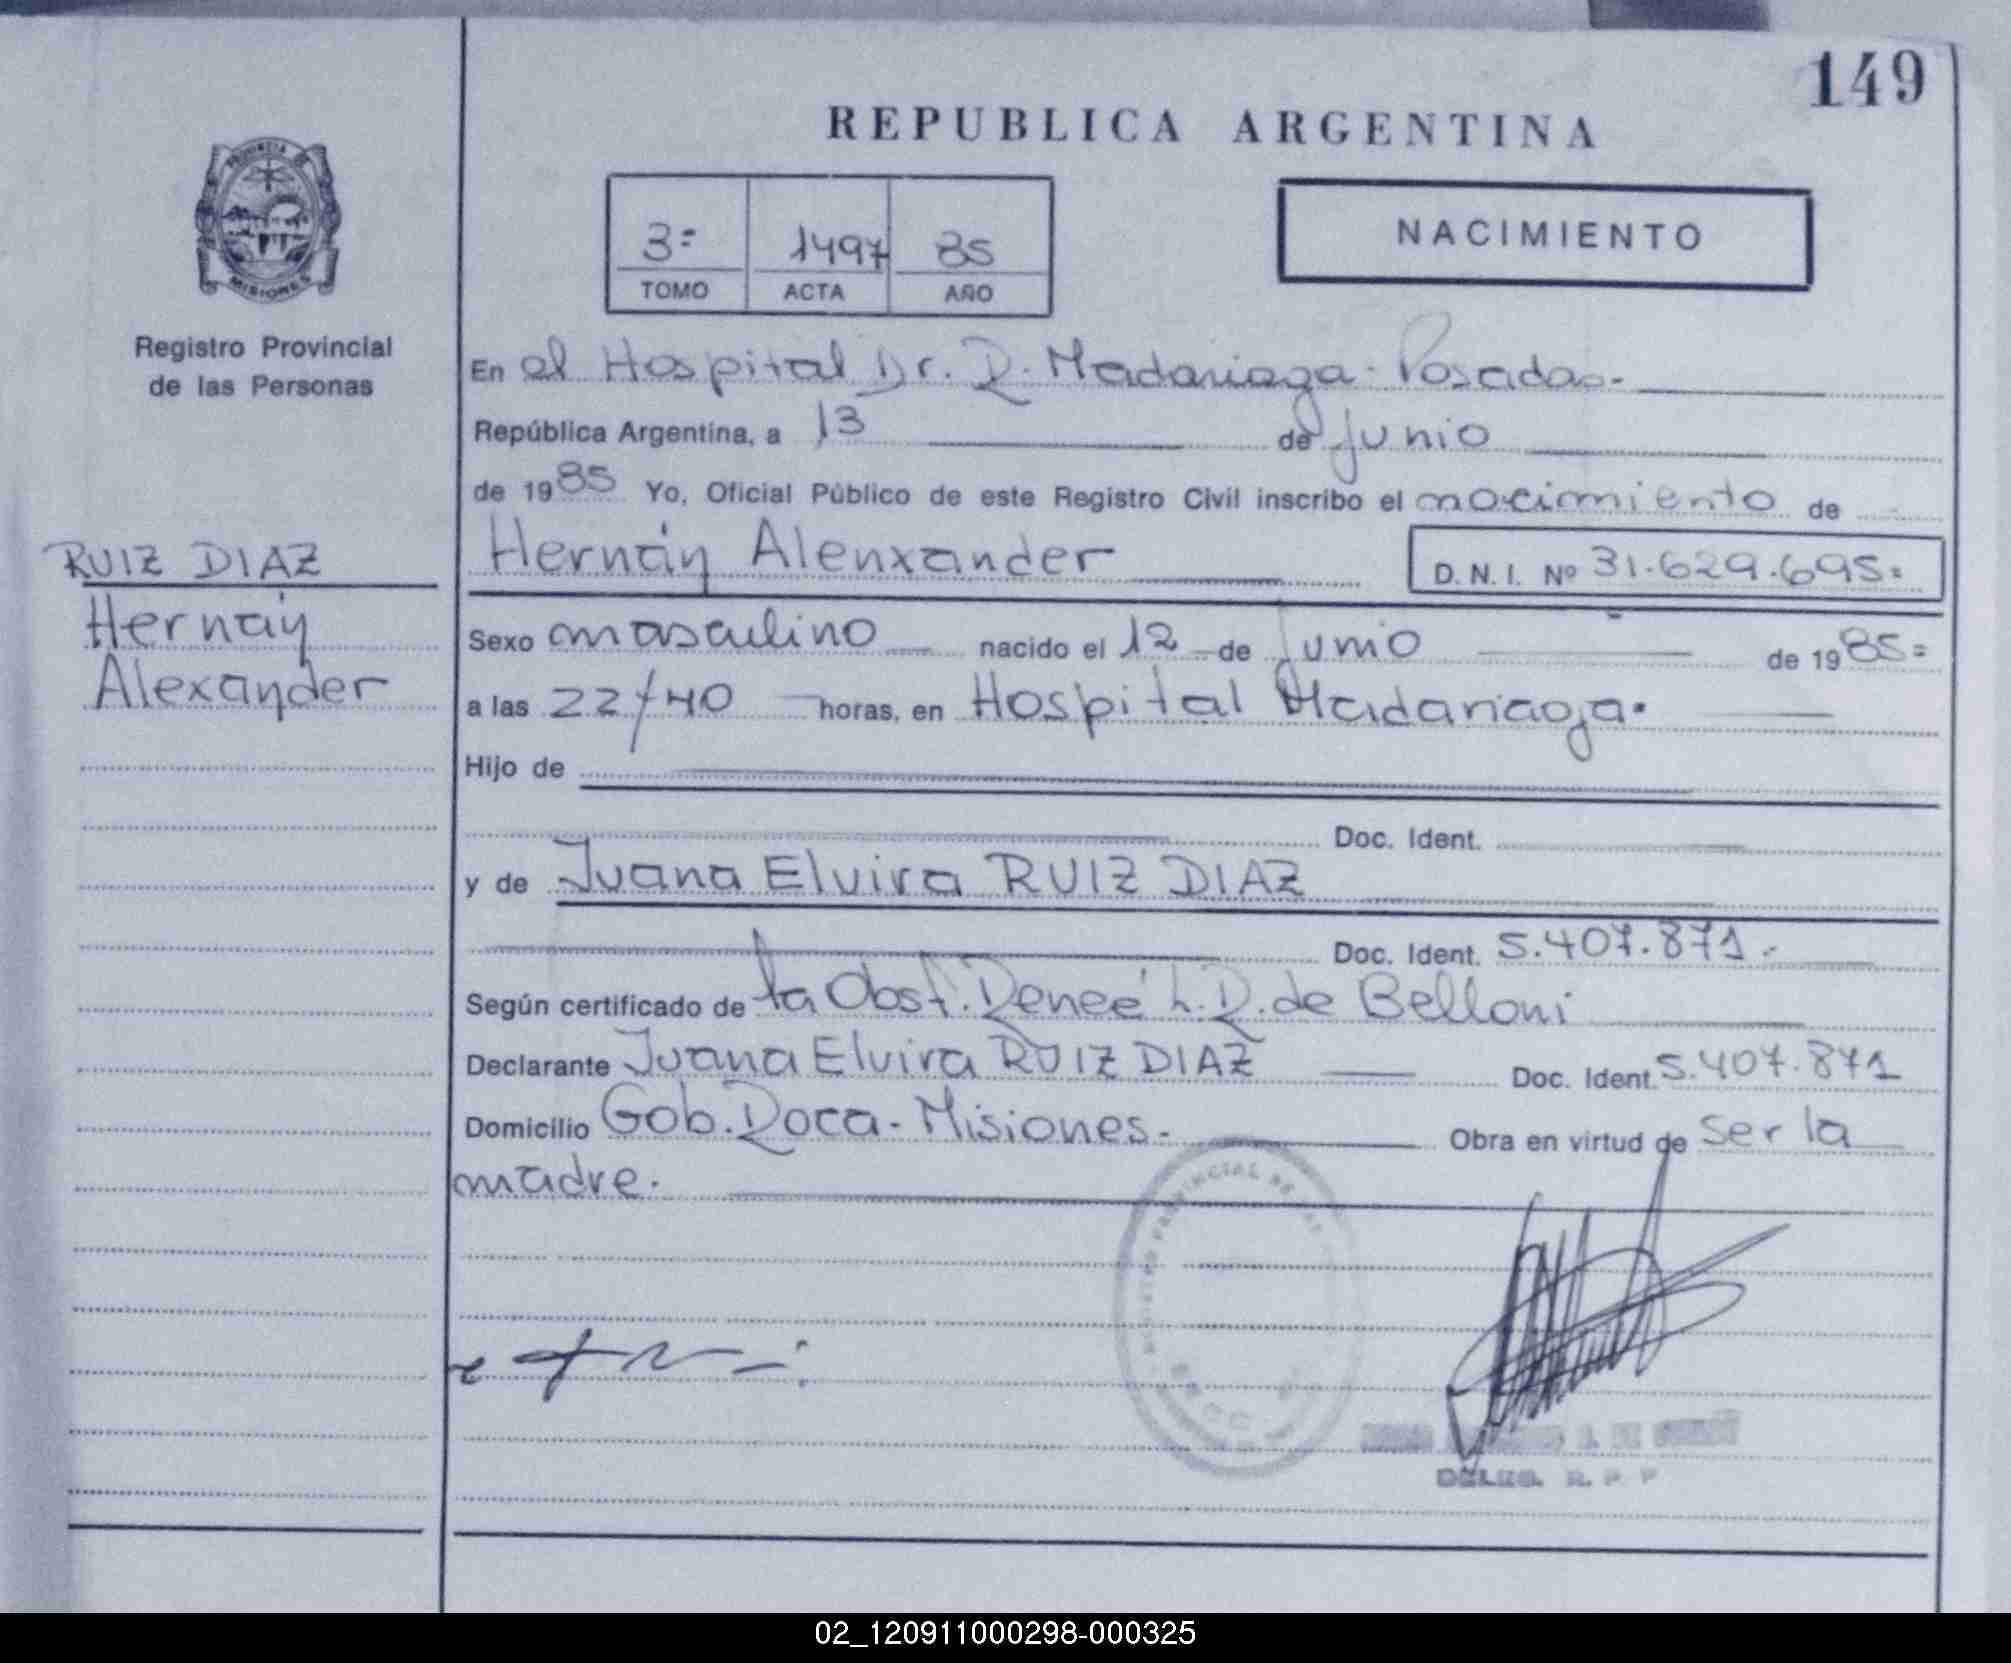 149
REPUBLICA ARGENTINA
PROVINCIA DE
MISIONES
3= 1497 85
TOMO ACTA AÑO
NACIMIENTO
Registro Provincial
de las Personas
En el Hospital Dr. R. Madariaga - Posadas.-
República Argentina, a 13 de junio
de 1985 Yo, Oficial Público de este Registro Civil inscribo el nacimiento de
RUIZ DIAZ
Hernán
Alexander
Hernán Alenxander D.N.I. Nº 31.629.695=
Sexo masculino nacido el 12 de junio de 1985=
a las 22/40 horas, en Hospital Madariaga.
Hijo de
Doc. Ident.
y de Juana Elvira RUIZ DIAZ
Doc. Ident. 5.407.871.-
Según certificado de la Obst. Reneé L. R. de Belloni
Declarante Juana Elvira RUIZ DIAZ Doc. Ident. 5.407.871
Domicilio Gob. Roca - Misiones.- Obra en virtud de ser la
madre.
DELEG. R. P. P
02_120911000298-000325